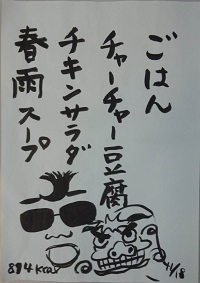 ごはん
チャーチャー豆腐
チキンサラダ
春雨スープ
894kcal
11/18